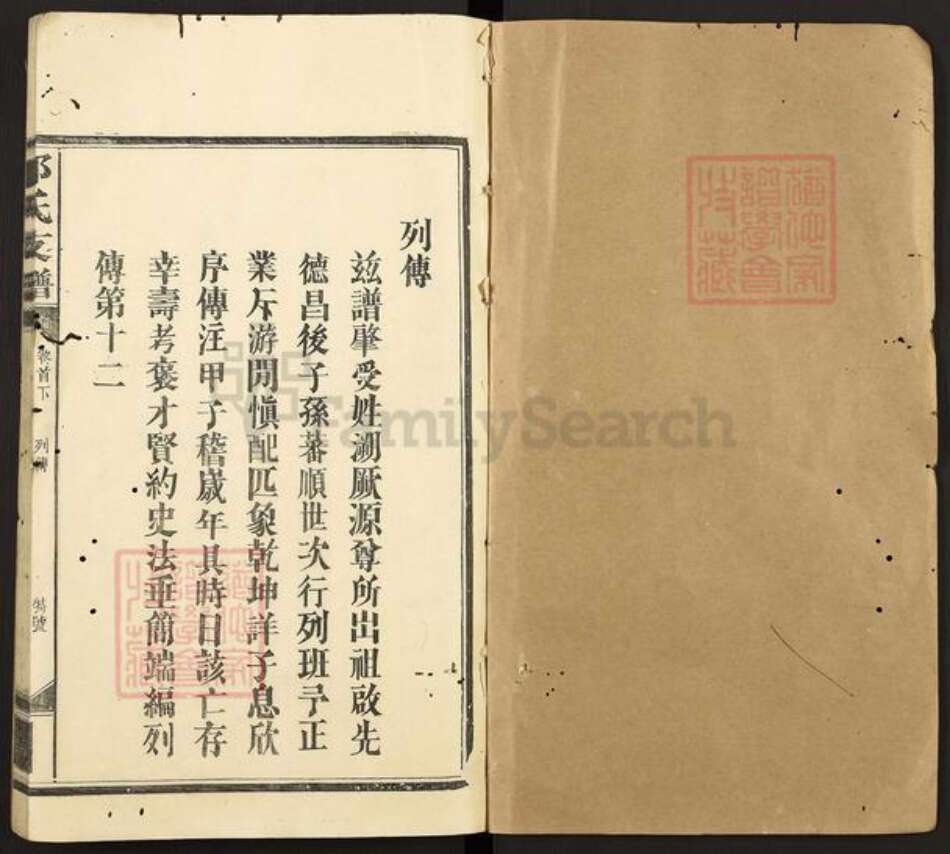 列傳
茲譜肇受姓溯厥源尊所出祖啟先
德昌後子孫蕃順世次行列班予正
業斥游閒慎配匹象乾坤詳子息欣
序傳注甲子稽歲年具時日該亡存
幸壽考褒才賢約史法垂簡端編列
傳第十二
氏支譜
卷首下
列傳
特號
譜學會
特藏
FamilySearch